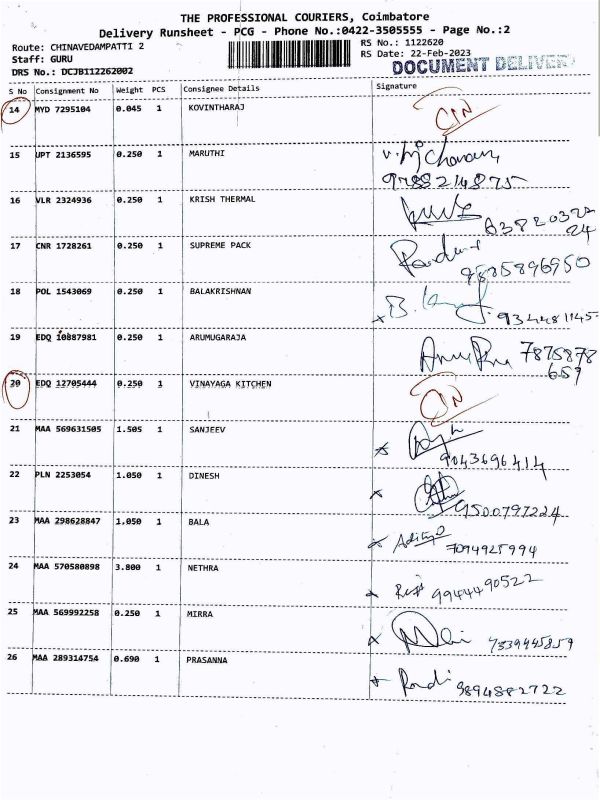 THE PROFESSIONAL COURIERS, Coimbatore
Delivery Runsheet - PCG - Phone No.:0422-3505555 - Page No.:2
Route: CHINAVEDAMPATTI 2
Staff: GURU
DRS No.: DCJB112262002
RS No.: 1122620
RS Date: 22-Feb-2023
DOCUMENT DELIVERY
S No Consignment No Weight PCS Consignee Details Signature
14 MYD 7295104 0.045 1 KOVINTHARAJ
15 UPT 2136595 0.250 1 MARUTHI
16 VLR 2324936 0.250 1 KRISH THERMAL
17 CNR 1728261 0.250 1 SUPREME PACK
18 POL 1543069 0.250 1 BALAKRISHNAN
19 EDQ 10887981 0.250 1 ARUMUGARAJA
20 EDQ 12705444 0.250 1 VINAYAGA KITCHEN
21 MAA 569631505 1.505 1 SANJEEV
9043696414
22 PLN 2253054 1.050 1 DINESH
9500797224
23 MAA 298628847 1.050 1 BALA
7094925994
24 MAA 570580898 3.800 1 NETHRA
9944490522
25 MAA 569992258 0.250 1 MIRRA
7339445859
26 MAA 289314754 0.690 1 PRASANNA
9894882722